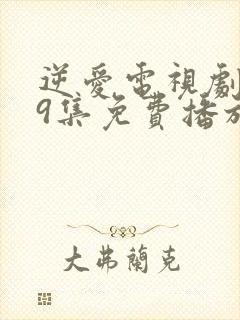 逆愛電視劇
9集免費播放
大弗蘭克